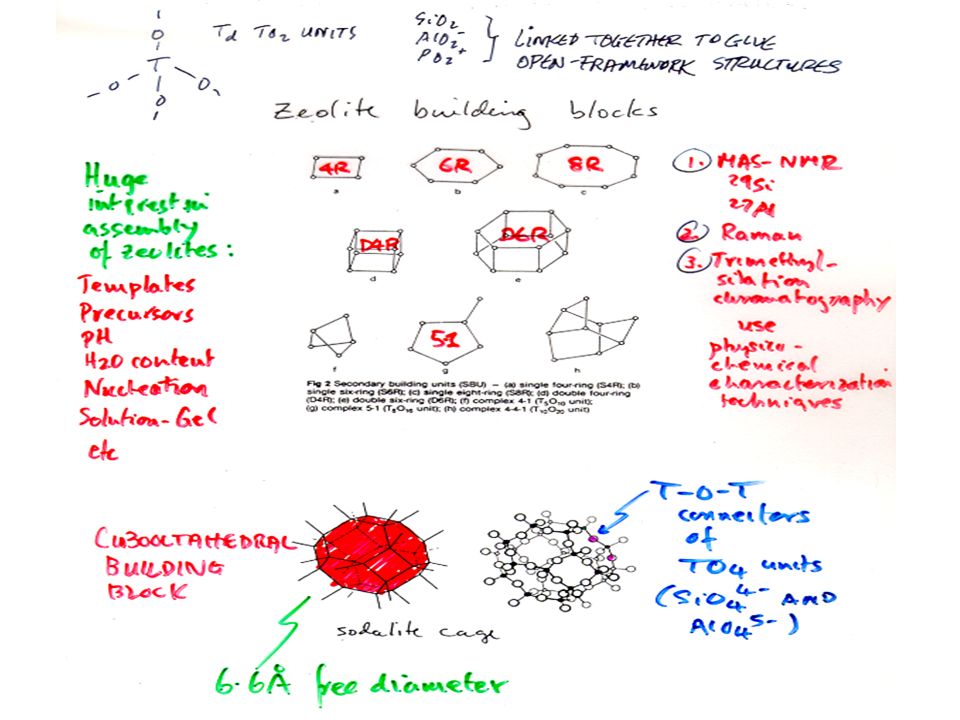 Td TO2 UNITS
SiO2
AlO2-
PO2+
LINKED TOGETHER TO GIVE
OPEN-FRAMEWORK STRUCTURES
O
O T O
O
Zeolite building blocks
Huge
interest in
assembly
of zeolites:
Templates
Precursors
pH
H2O content
Nucleation
Solution-Gel
etc
4R
6R
8R
a
b
c
D4R
D6R
d
e
5-1
f
g
h
Fig 2 Secondary building units (SBU) — (a) single four-ring (S4R); (b)
single six-ring (S6R); (c) single eight-ring (S8R); (d) double four-ring
(D4R); (e) double six-ring (D6R); (f) complex 4-1 (T5O10 unit);
(g) complex 5-1 (T8O16 unit); (h) complex 4-4-1 (T10O20 unit)
1. MAS-NMR
29Si
27Al
2. Raman
3. Trimethyl-
silation
chromatography
use
physico-
chemical
characterization
techniques
CUBOOCTAHEDRAL
BUILDING
BLOCK
sodalite cage
6.6Å free diameter
T-O-T
connectors
of
TO4 units
(SiO4 4- AND
AlO4 5-)